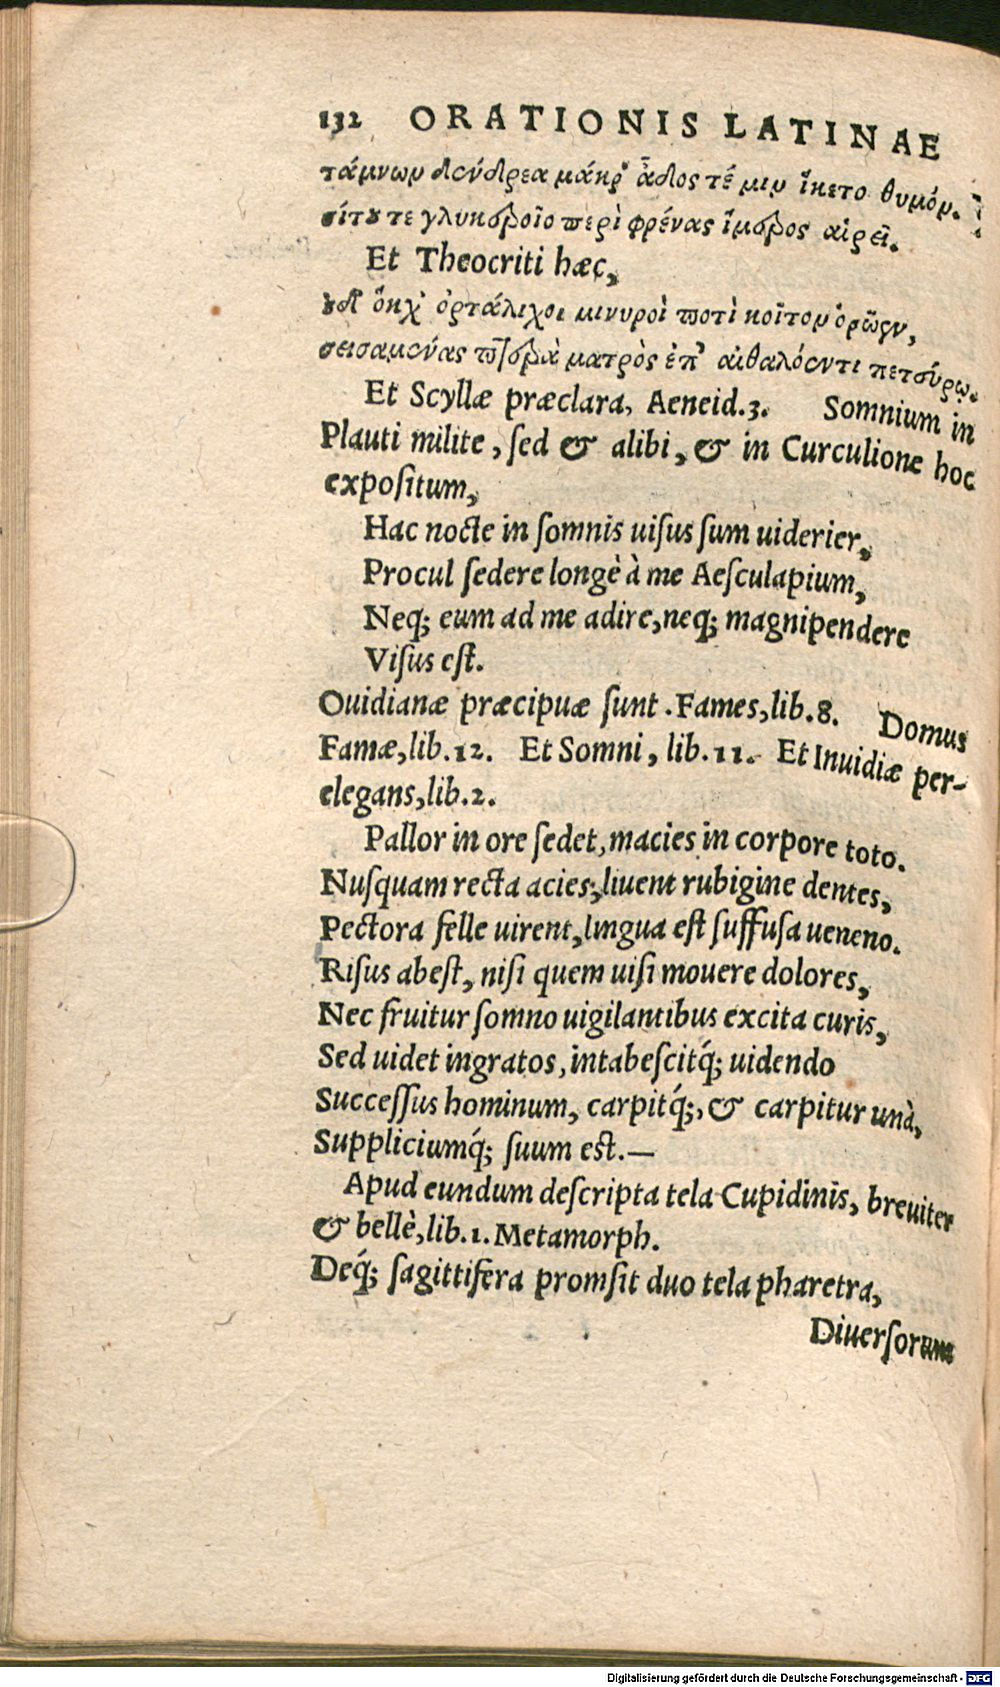 132 ORATIONIS LATINAE
τάμνων δένδρεα μάκρ' ἅδος τέ μιν ἵκετο θυμόν.
σίτου τε γλυκεροῖο περὶ φρένας ἵμερος αἱρεῖ.
Et Theocriti hæc,
οὐδ' ὅκχ' ὀρτάλιχοι μινυροὶ ποτὶ κοῖτον ὁρῷεν,
σεισαμένας πτερὰ ματρὸς ἐπ' αἰθαλόεντι πετεύρῳ.
Et Scyllæ præclara, Aeneid.3. Somnium in
Plauti milite, ſed & alibi, & in Curculione hoc
expoſitum,
Hac nocte in ſomnis uiſus ſum uiderier,
Procul ſedere longè à me Aeſculapium,
Neq; eum ad me adire, neq; magnipendere
Viſus eſt.
Ouidianæ præcipuæ ſunt. Fames, lib.8. Domus
Famæ, lib.12. Et Somni, lib.11. Et Inuidiæ per-
elegans, lib.2.
Pallor in ore ſedet, macies in corpore toto.
Nuſquam recta acies, liuent rubigine dentes,
Pectora felle uirent, lingua eſt ſuffuſa ueneno.
Riſus abeſt, niſi quem uiſi mouere dolores,
Nec fruitur ſomno uigilantibus excita curis,
Sed uidet ingratos, intabeſcitq́; uidendo
Succeſſus hominum, carpitq́;, & carpitur unà,
Suppliciumq́; ſuum eſt.—
Apud eundum deſcripta tela Cupidinis, breuiter
& bellè, lib.1. Metamorph.
Deq́; ſagittifera promſit duo tela pharetra,
Diuerſorum
Digitalisierung gefördert durch die Deutsche Forschungsgemeinschaft - DFG